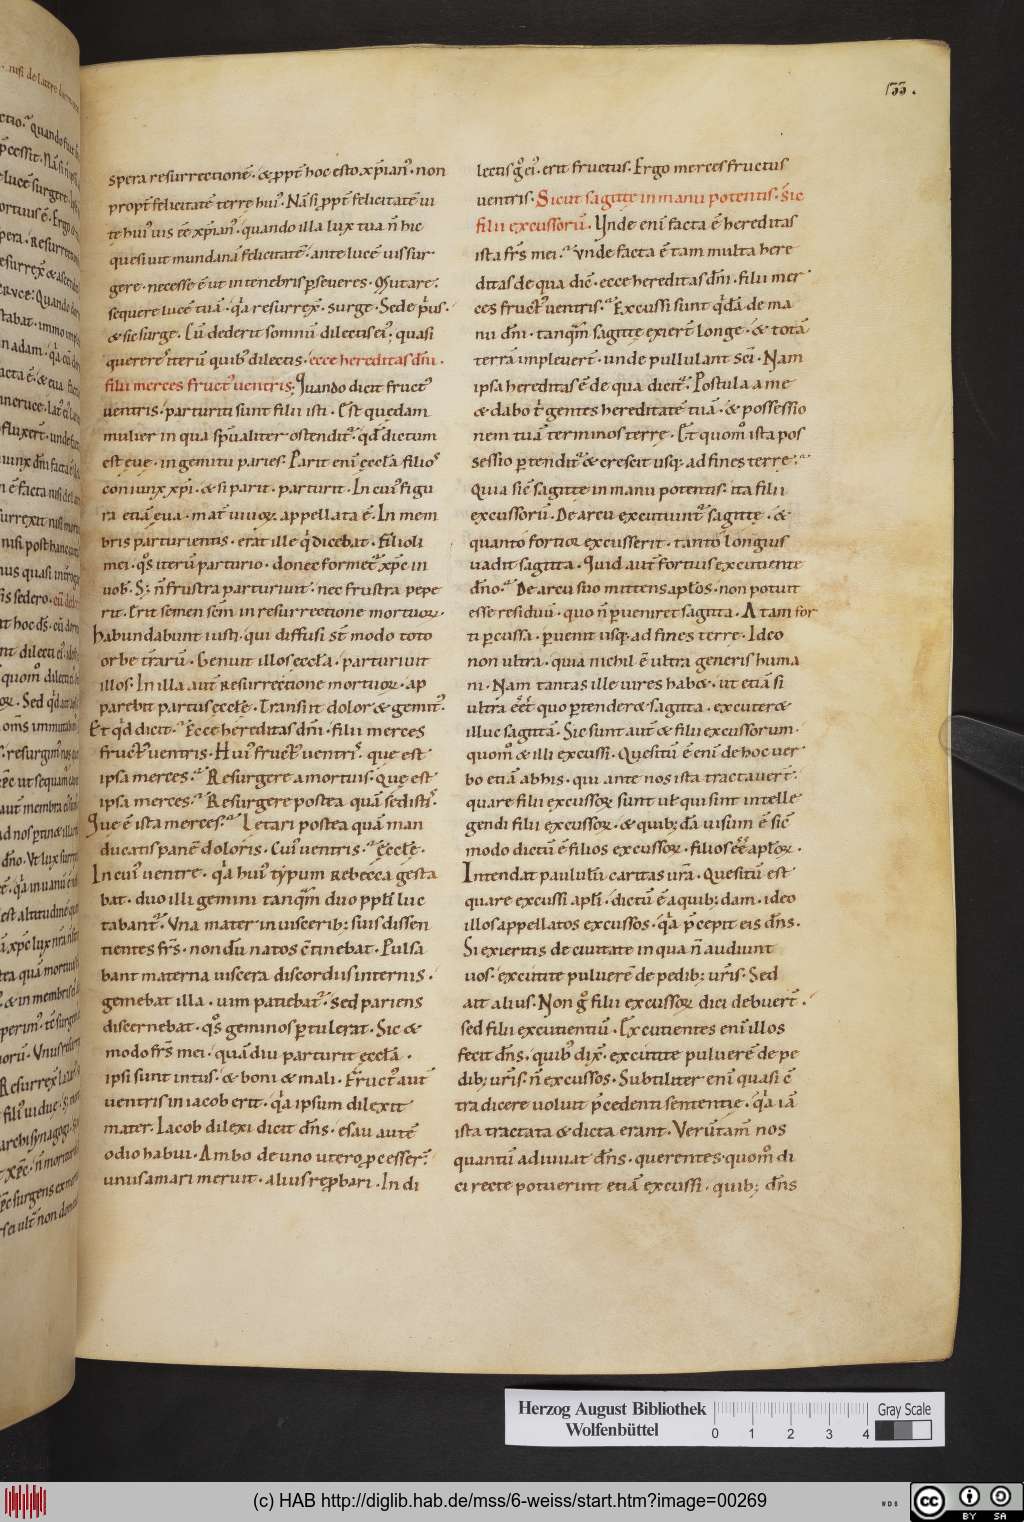 133.
spera resurrectionē. & ꝓpt̄ hoc esto xp̄ian᷒. non
propt̄ felicitatē terrę hui᷒. Nā si ꝓpt̄ felicitatē ui
te hui᷒ uis ēē xp̄ian᷒. quando illa lux tua n̄ hic
quesiuit mundanā felicitatē. ante lucē uis sur
gere. necesse ē ut in tenebris ꝑseueres. Mutare.
sequere lucē tuā. q̇a resurrex̄. surge. Sede ṗus.
& sic surge. Cū dederit somnū dilectis ei᷒. quasi
quereret᷒ iterū quib᷒ dilectis. ecce hereditas dn̄i.
filii merces fruct᷒ uentris. Quando dicit fruct᷒
uentris. parturiti sunt filii isti. Est quedam
mulier in qua spūaliter ostendit᷒. qd̄ dictum
est euę. in gemitu paries. Parit eni᷒ ęccl̄a filio᷒
coniunx xp̄i. & si parit. parturit. In cui᷒ figu
ra etiā eua. mat̄ uiuoꝝ appellata ē. In mem
bris parturientis. erat ille q̇ dicebat. Filioli
mei. q᷒s iterū parturio. donec formet᷒ xp̄c in
uob᷒. S; n̄ frustra parturiuit. nec frustra pepe
rit. Erit semen sc̄m in resurrectione mortuoꝝ.
habundabunt iusti. qui diffusi st̄ modo toto
orbe tr̄arū. Genuit illos ęccl̄a. parturiuit
illos. In illa aut̄ Resurrectione mortuoꝝ. ap
parebit partus ęccłę. Transiit dolor & gemit᷒.
Et qd̄ dicit. Ecce hereditas dn̄i. filii merces
fruct᷒ uentris. Hui᷒ fruct᷒ uentr᷒. que est
ipsa merces. Resurgere a mortuis. Que est
ipsa merces. Resurgere postea quā sedisti᷒.
Que ē ista merces. Letari postea quā man
ducatis panē doloris. Cui᷒ uentris. ęccłę.
In cui᷒ uentre. q̇a hui᷒ typum Rebecca gesta
bat. duo illi gemini tanquā duo ppl̄i luc
tabant᷒. Vna mater in uiscerib; suis dissen
tientes fr̄s. nondū natos c̄tinebat. Pulsa
bant materna uiscera discordiis internis.
gemebat illa. uim patiebat᷒. Sed pariens
discernebat. q᷒s geminos ꝑtulerat. Sic &
modo fr̄s mei. quādiu parturit ęccl̄a.
ipsi sunt intus. & boni & mali. Fruct᷒ aut̄
uentris in iacob erit. q̇a ipsum dilexit
mater. Iacob dilexi dicit dn̄s. esau autē
odio habui. Ambo de uno utero ꝓcesser̄.
unus amari meruit. alius reꝓbari. In di
lectis g᷒ ei᷒. erit fructus. Ergo merces fructus
uentris. Sicut sagittę in manu potentis. sic
filii excussorū. Unde eni᷒ facta ē hereditas
ista fr̄s mei. Vnde facta ē tam multa here
ditas de qua dic̄. ecce hereditas dn̄i. filii mer
ces fruct᷒ uentris. Excussi sunt q̇dā de ma
nu dn̄i. tanqm̄ sagittę exiert̄ longe. & totā
terrā impleuert̄. unde pullulant sc̄i. Nam
ipsa hereditas ē de qua dicit᷒. Postula a me
& dabo t̄ gentes hereditatē tuā. & possessio
nem tuā terminos terre. Et quom᷒ ista pos
sessio ꝑtendit᷒ & crescit usq; ad fines terre.
Quia sic̄ sagittę in manu potentis. ita filii
excussorū. De arcu excutiunt᷒ sagittę. &
quanto fortioꝝ excusserit. tanto longius
uadit sagitta. Quid aut̄ fortius excutiente
dn̄o. De arcu suo mittens apl̄os. non potuit
esse residuū. quo n̄ ꝑueniret sagitta. A tam for
ti ꝑcussa. ꝑuenit usq; ad fines terre. Ideo
non ultra. quia nichil ē ultra generis huma
ni. Nam tantas ille uires hab&. ut etiā si
ultra eēt quo ꝑtender& sagitta. excuter&
illuc sagittā. Sic sunt aut̄ & filii excussorum.
quom᷒ & illi excussi. Quesitū ē eni᷒ de hoc uer
bo etiā ab his. qui ante nos ista tractauert̄.
quare filii excussoꝝ sunt uł qui sint intelle
gendi filii excussoꝝ. & quib;dā uisum ē sic̄
modo dictū ē filios excussoꝝ. filios eē apl̄oꝝ.
Intendat paululū caritas ur̄a. Quesitū est
quare excussi apl̄i. dictū ē a quib;dam. ideo
illos appellatos excussos. q̇a p̄cepit eis dn̄s.
Si exieritis de ciuitate in qua n̄ audiunt
uos. excutite puluerē de pedib; ur̄is. Sed
ait alius. Non g᷒ filii excussoꝝ dici debuert̄.
sed filii excutientiū. Excutientes eni᷒ illos
fecit dn̄s. quib᷒ dix᷒. excutite puluerē de pe
dib; ur̄is. n̄ excussos. Subtiliter eni᷒ quasi c̄
tra dicere uoluit p̄cedenti sententię. q̇a iā
ista tractata & dicta erant. Verūtam̄ nos
quantū adiuuat dn̄s. querentes quom᷒ di
ci recte potuerint etiā excussi. quib; dn̄s
Herzog August Bibliothek
Wolfenbüttel
Gray Scale
0 1 2 3 4
(c) HAB http://diglib.hab.de/mss/6-weiss/start.htm?image=00269
WDB
cc BY SA